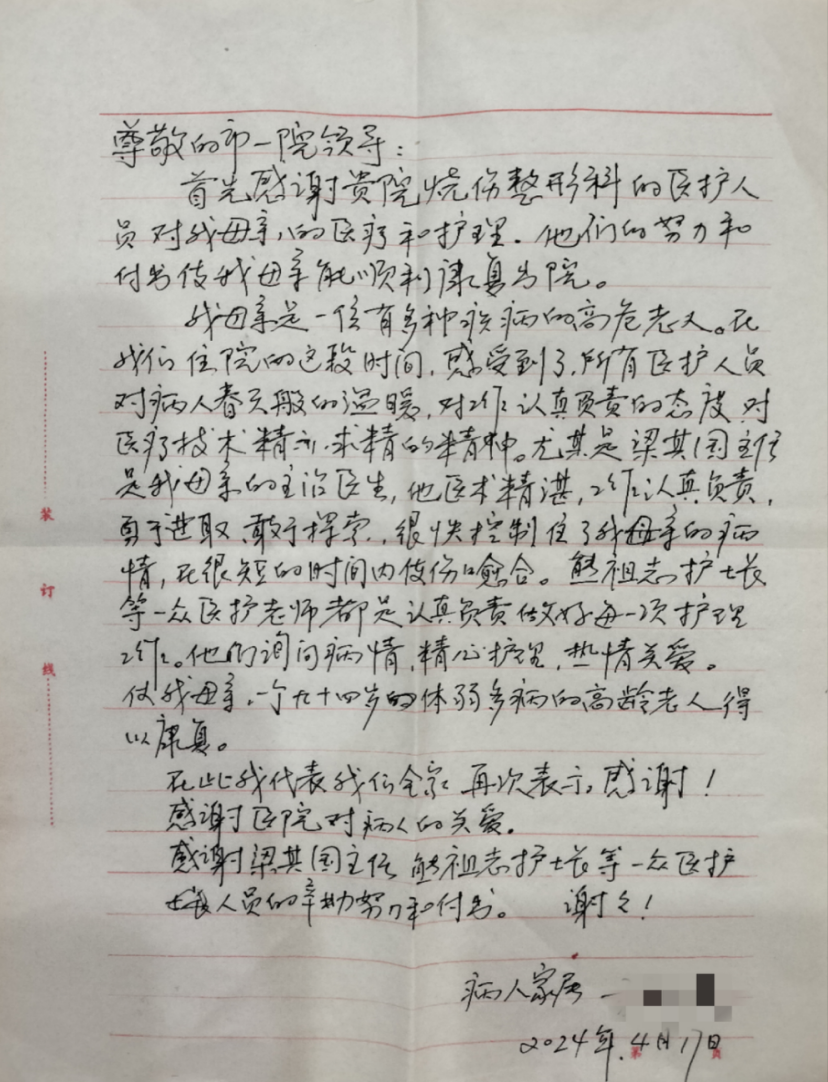 尊敬的市一院领导：
首先感谢贵院烧伤整形科的医护人
员对我母亲的医疗和护理。他们的努力和
付出使我母亲能顺利康复出院。
我母亲是一位有多种疾病的高危老人。在
我们住院的这段时间，感受到了，所有医护人员
对病人春天般的温暖，对工作认真负责的态度，对
医疗技术精益求精的精神。尤其是梁其国主任
是我母亲的主治医生，他医术精湛，工作认真负责，
勇于进取、敢于探索，很快控制住了我母亲的病
情，在很短的时间内使伤口愈合。熊祖志护士长
等一众医护老师都是认真负责做好每一次护理
工作。他们询问病情，精心护理，热情关爱。
使我母亲，一个九十四岁的体弱多病的高龄老人得
以康复。
在此我代表我们全家再次表示感谢！
感谢医院对病人的关爱。
感谢梁其国主任 熊祖志护士长等一众医护
人员的辛勤努力和付出。 谢谢！
病人家属
2024年4月17日
装
订
线
第 页